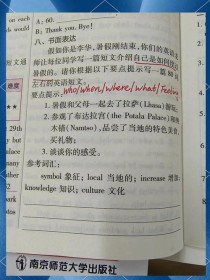 A: 60.
B: Thank you. Bye!
八、书面表达
假如你是李华,暑假刚结束,你们的英语老
师让每位同学写一篇短文介绍自己是如何度过
暑假的。请你根据以下要点提示写一篇
左右的英语短文。
要点提示: who/when/where/what/feeling
1. 暑假和父母一起去了拉萨(Lhasa)游玩;
2. 参观了布达拉宫(the Potala Palace)和纳
木错(Namtso),品尝了当地的特色美食,
买礼物;
3. 谈谈你的感受。
参考词汇:
symbol 象征; local 当地的; increase 增加;
knowledge 知识; culture 文化
南京师范大学出版社